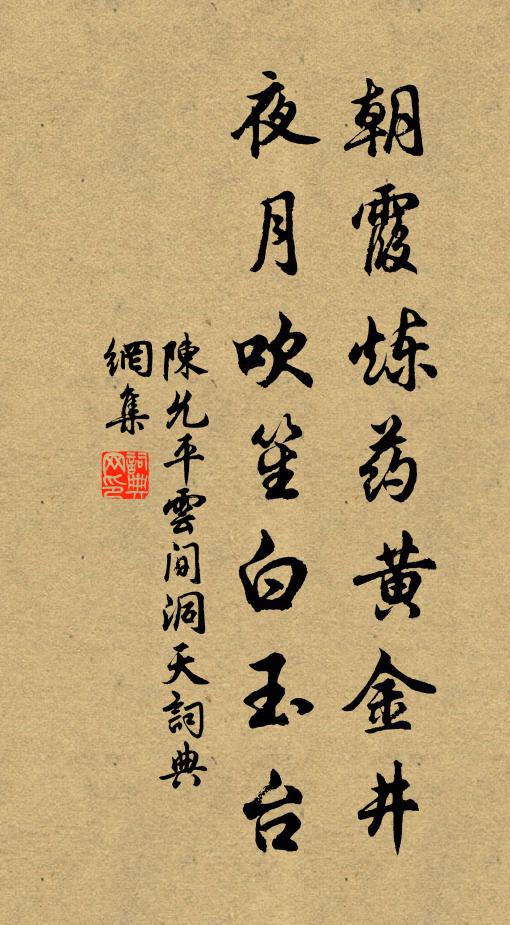 朝霞炼药黄金井
夜月吹笙白玉台
陳允平雲间洞天詞典
網集
詞典
网印